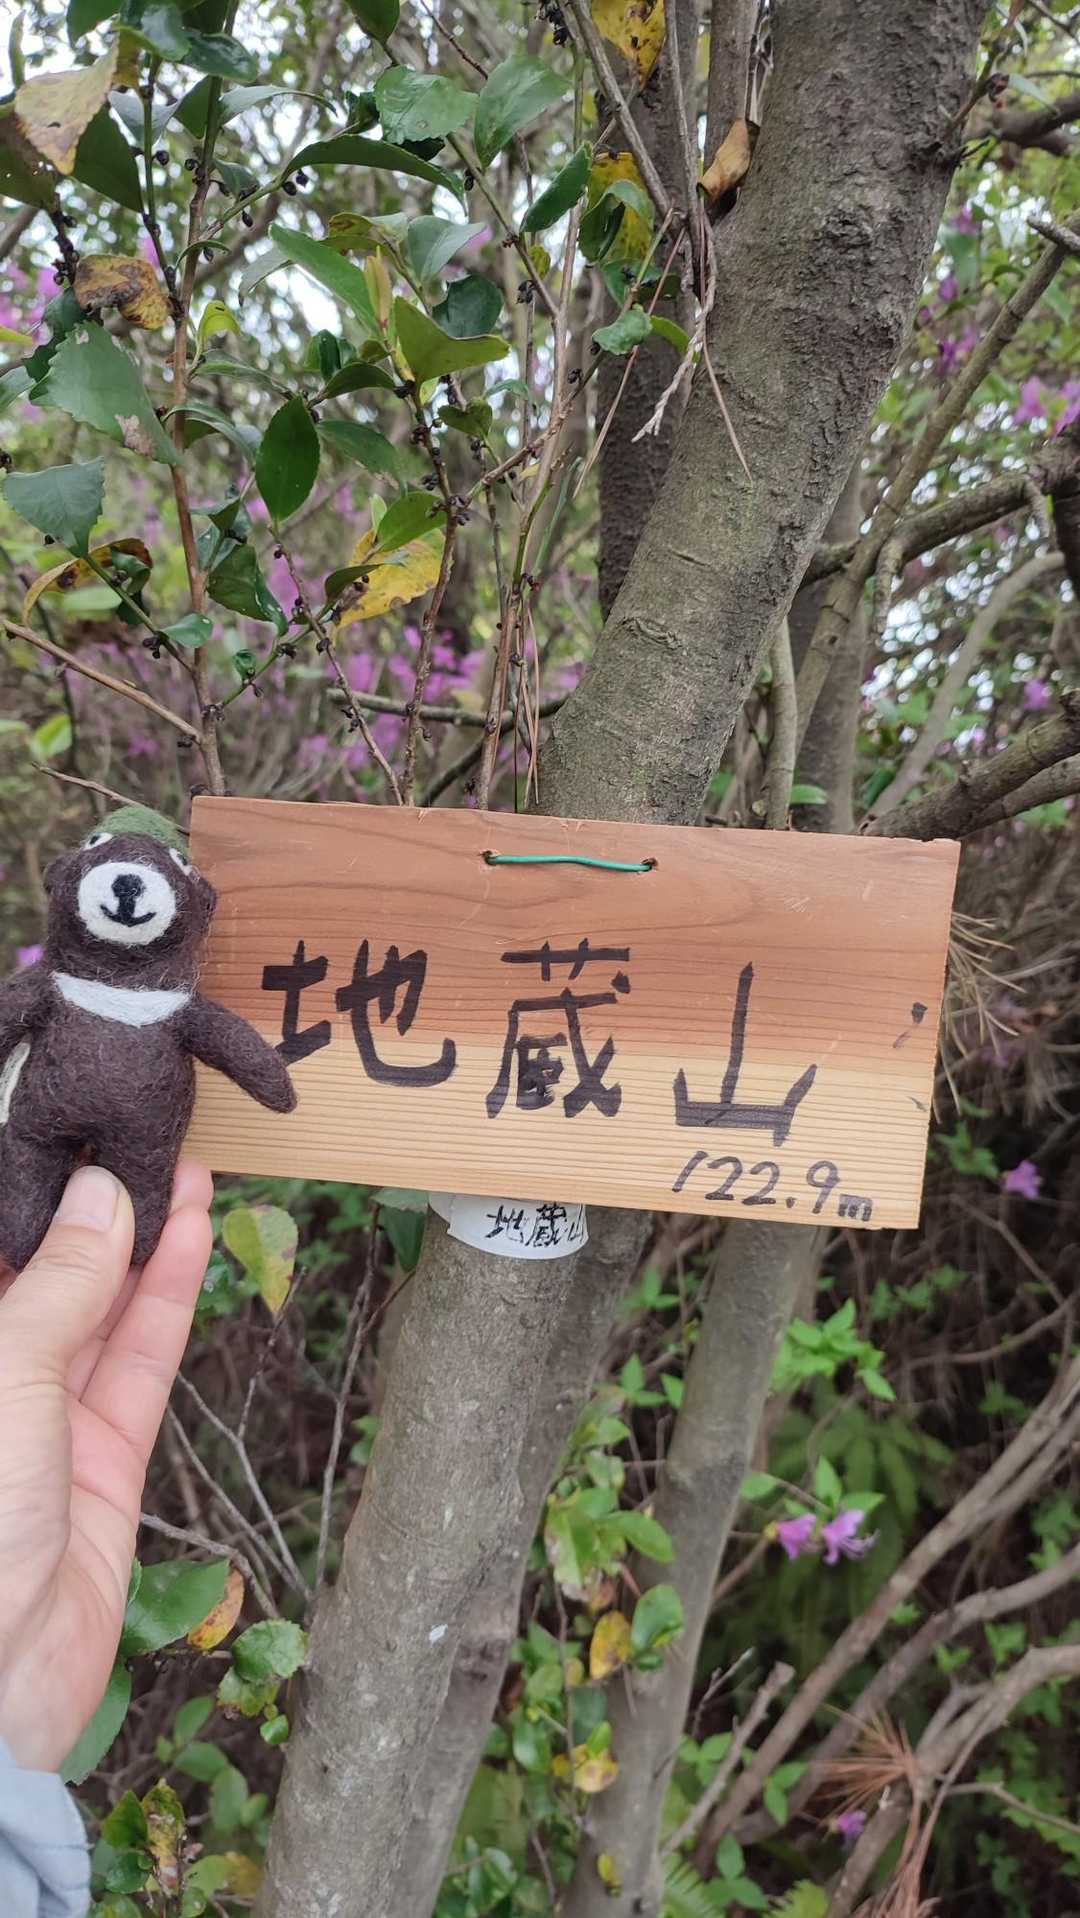 地蔵山
122.9m
地蔵山